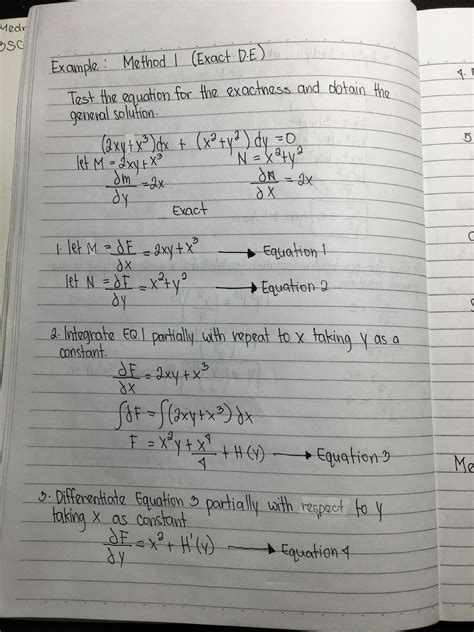 Medr
BSC
Example: Method 1 (Exact D.E)
Test the equation for the exactness and obtain the
general solution.
(2xy+x³)dx + (x²+y²) dy =0
let M = 2xy+x³ N = x²+y²
∂m/∂y = 2x ∂N/∂x = 2x
Exact
1. let M = ∂F/∂x = 2xy+x³ → Equation 1
let N = ∂F/∂y = x²+y² → Equation 2
2. Integrate EQ.1 partially with repeat to x taking y as a
constant.
∂F/∂x = 2xy+x³
∫∂F = ∫(2xy+x³)∂x
F = x²y + x⁴/4 + H(y) → Equation 3
3. Differentiate Equation 3 partially with respect to y
taking x as constant
∂F/∂y = x² + H'(y) → Equation 4
4.
5
Me